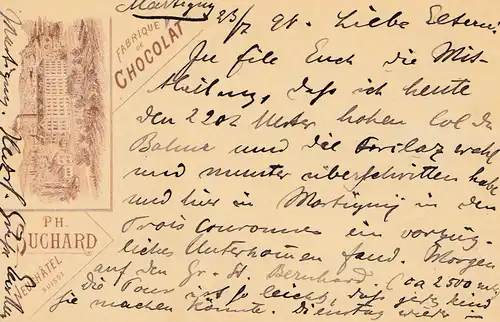 Martigny 23/7 91. Liebe Eltern.
In Eile Euch die Mit-
theilung, dass ich heute
den 2202 Meter hohen Col de
Balme und die Forclaz wohl
und munter überschritten habe
und hier in Martigny in den
Trois Couronnes ein vorzüg-
liches Unterkommen fand. Morgen
auf den Gr. St. Bernhard. (ca 2500
die Tour ist so leicht, dass jedes Kind
sie machen könnte. Dienstag wieder in
Martigny. Herzl. Grüße
FABRIQUE
DE
CHOCOLAT
PH.
SUCHARD
NEUCHATEL
SUISSE